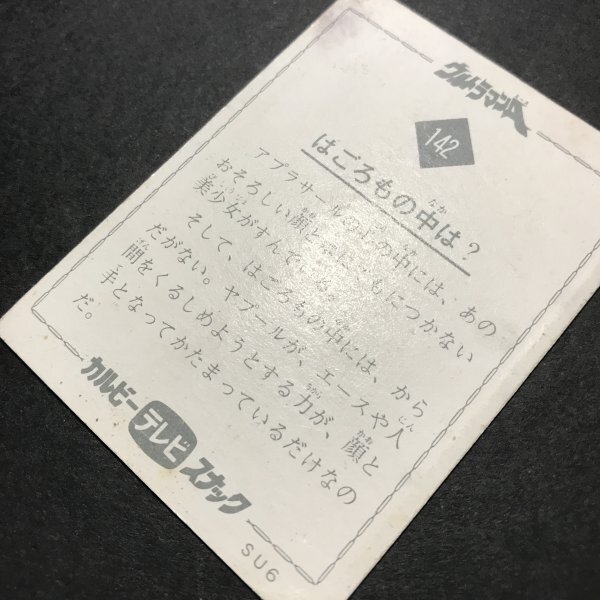 ウルトラマンA
142
はごろもの中は？
アプラサールの上の中には、あの
おそろしい顔とにもにつかない
美少女がすんでいる。
そして、はごろもの中には、から
だがない。ヤプールが、エースや人
間をくるしめようとする力が、顔と
手となってかたまっているだけなの
だ。
カルビーテレビスナック
SU6